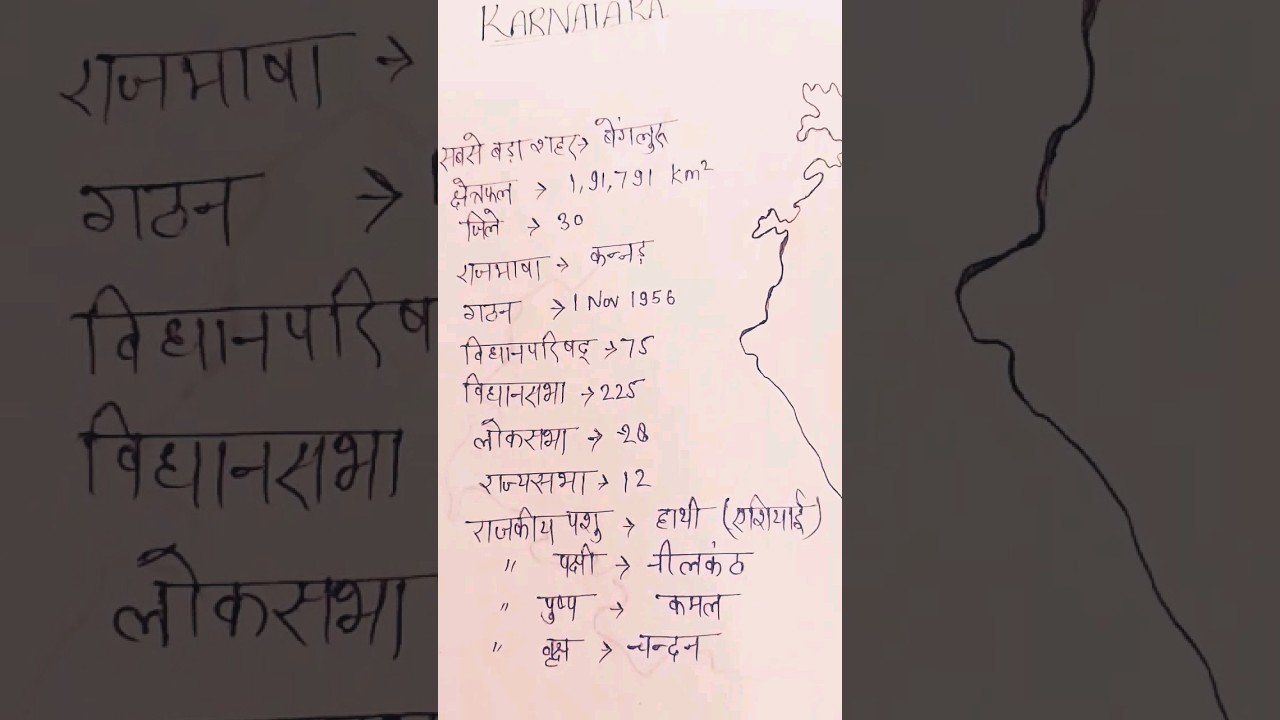 KARNATAKA
सबसे बड़ा शहर → बेंगलुरू
क्षेत्रफल → 1,91,791 km²
जिले → 30
राजभाषा → कन्नड़
गठन → 1 Nov 1956
विधानपरिषद् → 75
विधानसभा → 225
लोकसभा → 28
राज्यसभा → 12
राजकीय पशु → हाथी (एशियाई)
" पक्षी → नीलकंठ
" पुष्प → कमल
" वृक्ष → चन्दन
राजभाषा →
गठन →
विधानपरिष
विधानसभा
लोकसभा